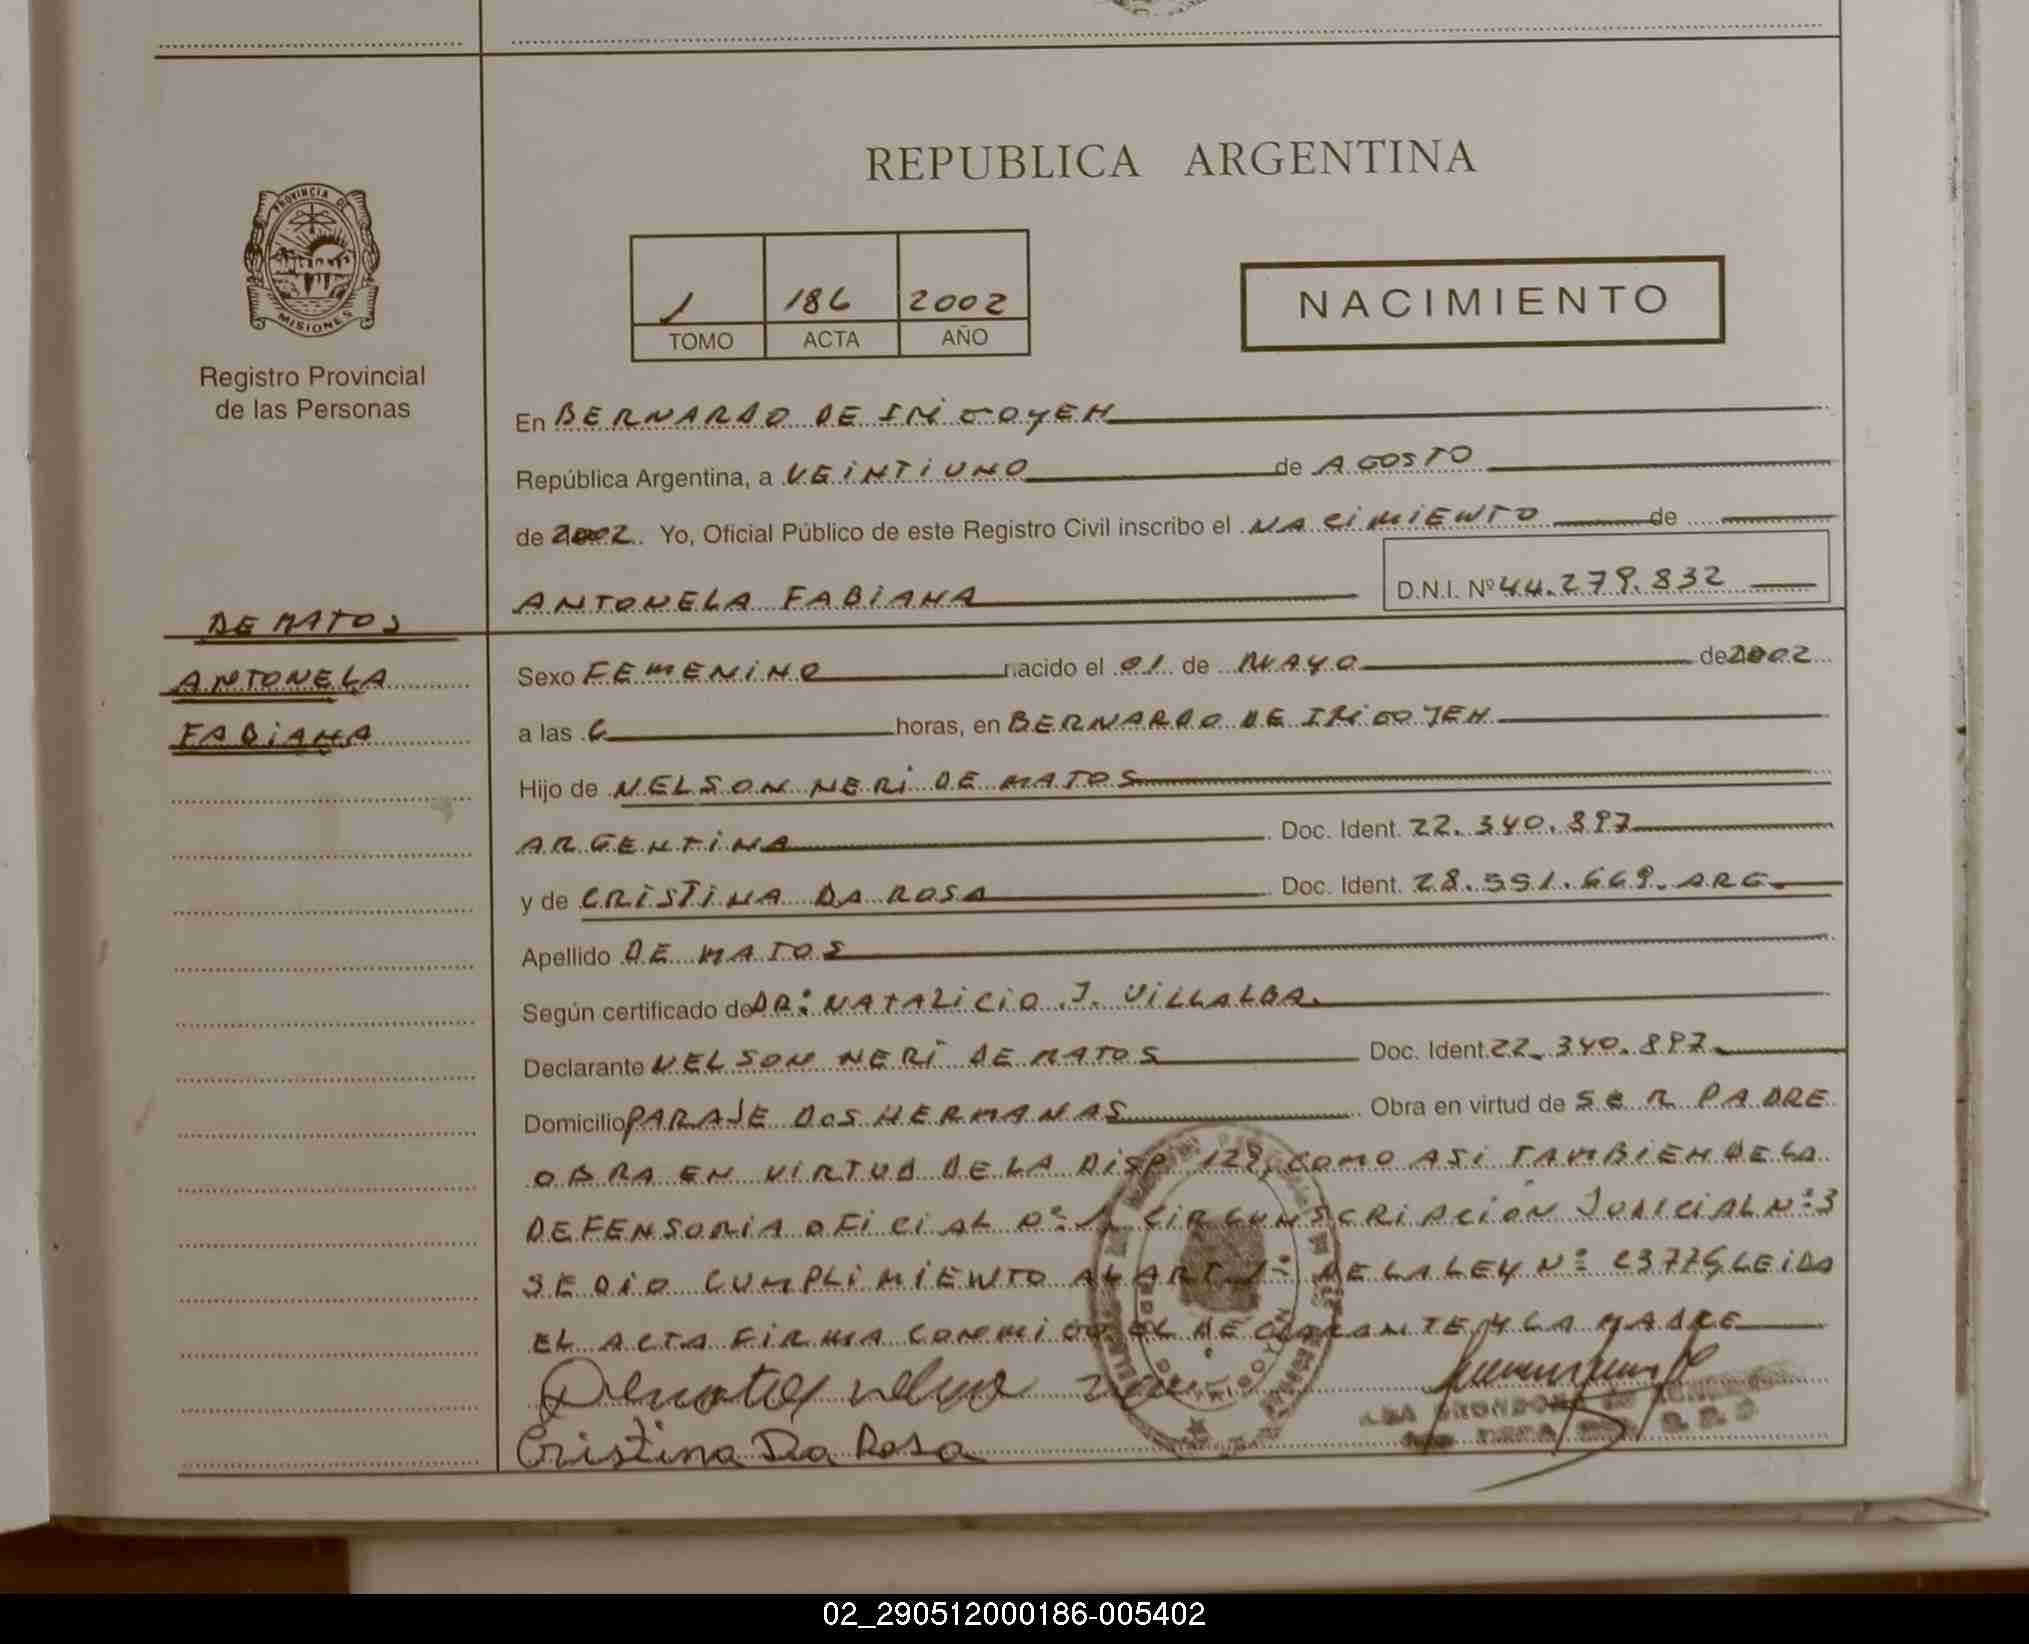 REPUBLICA ARGENTINA
PROVINCIA DE
MISIONES
Registro Provincial
de las Personas
1 186 2002
TOMO ACTA AÑO
NACIMIENTO
En BERNARDO DE IRIGOYEN
República Argentina, a VEINTIUNO de AGOSTO
de 2002. Yo, Oficial Público de este Registro Civil inscribo el NACIMIENTO de
ANTONELA FABIANA D.N.I. Nº 44.279.832
DE MATOS
ANTONELA
FABIANA
Sexo FEMENINO nacido el 01 de MAYO de 2002
a las 6 horas, en BERNARDO DE IRIGOYEN
Hijo de NELSON NERI DE MATOS
ARGENTINA Doc. Ident. 22.340.897
y de CRISTINA DA ROSA Doc. Ident. 28.551.669. ARG.
Apellido DE MATOS
Según certificado de DR: NATALICIO J. VILLALBA.
Declarante NELSON NERI DE MATOS Doc. Ident. 22.340.897
Domicilio PARAJE DOS HERMANAS Obra en virtud de SER PADRE
OBRA EN VIRTUD DE LA DISP. 129, COMO ASI TAMBIEN DE LA
DEFENSORIA OFICIAL Nº 1 CIRCUNSCRIPCIÓN JUDICIAL Nº 3
SE DIO CUMPLIMIENTO AL ART 1º DE LA LEY Nº 23776, LEIDA
EL ACTA FIRMA CONMIGO EL DECLARANTE Y LA MADRE
Dematos nelson
Cristina Da Rosa
02_290512000186-005402